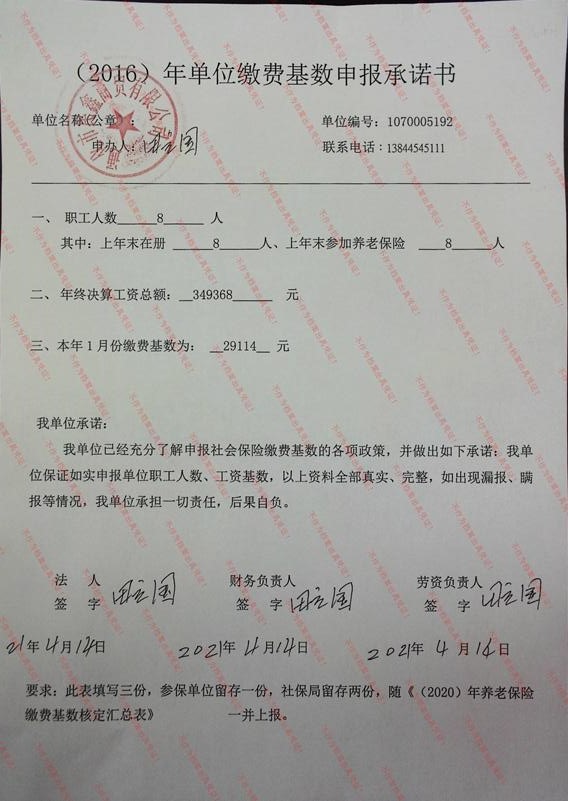 （2016）年单位缴费基数申报承诺书
单位名称（公章）： 单位编号：1070005192
申办人：田立国 联系电话：13844545111
一、 职工人数______8______ 人
其中：上年末在册 ______8______人、上年末参加养老保险 ____8____人
二、年终决算工资总额：__349368______ 元
三、本年 1 月份缴费基数为： __29114__ 元
我单位承诺：
我单位已经充分了解申报社会保险缴费基数的各项政策，并做出如下承诺：我单
位保证如实申报单位职工人数、工资基数，以上资料全部真实、完整，如出现漏报、瞒
报等情况，我单位承担一切责任，后果自负。
法 人 财务负责人 劳资负责人
签 字 田立国 签 字 田立国 签 字 田立国
21年4月14日 2021年4月14日 2021年4月14日
要求：此表填写三份，参保单位留存一份，社保局留存两份，随《（2020）年养老保险
缴费基数核定汇总表》 一并上报。